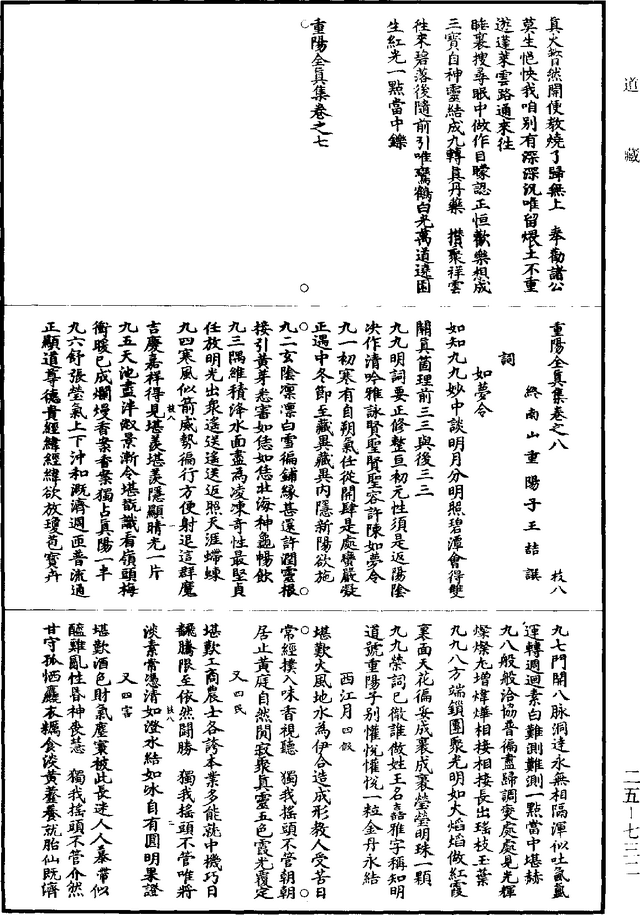 道藏
真火瞥然開便教燒了歸無上　奉勸諸公
莫生悒怏我咱別有深深況唯留煨土不重
遊蓬萊雲路通來往
眶裏搜尋眼中做作目矇認正恒歡樂想成
三寶自神靈結成九轉真丹藥　攢聚祥雲
往來碧落後隨前引唯鸞鶴白光萬道遶囷
生紅光一點當中鑠
重陽全真集卷之七
重陽全真集卷之八　枝八
終南山重陽子王嚞譔
詞
如夢令
如知九九妙中談明月分明照碧潭會得雙
關真箇理前三三與後三三
九九明詞要正修整亘初元性須是返陽陰
決作清吟雅詠賢聖賢聖容許陳如夢令
九一初寒有自朔氣任從開肆是處嚴凝
正遇中冬節至藏異藏異內隱新陽欲施
九二玄陰凜凜白雪徧鋪緣甚還許潤靈根
接引黃芽悉審如恁如恁壯海神龜暢飲
九三隅維積降水面盡為凌凍奇性最堅貞
任放明光出衆遥送遥送返照天涯螮蝀
九四寒風似箭威勢徧行方便射退這群魔
吉慶嘉祥得見堪羨堪羨隱顯晴光一片
九五天池盡泮溵景漸令堪翫識看嶺頭梅
衝暖已成爛熳香案香案獨占真陽一半
九六舒張瑩氣上下沖和溉濟週匝普流通
正顯道尊德貴經緯經緯欲放瓊苞寶卉
九七門開八脉洞達永無相隔渾似吐氤氳
運轉週迴素白難測難測一點當中堪赫
九八般般洽協普徧盡歸調燮處處見光輝
燦燦尤增煒爗相接相接長出瑤枝玉葉
九九八方端鎖團聚光明如火焰焰做紅霞
裏面天花徧妥成裹成裹瑩瑩明珠一顆
九九榮詞已徹誰做姓王名嚞雅字稱知明
道號重陽子別懽悅懽悅一粒金丹永結
西江月 四假
堪歎火風地水為伊合造成形教人受苦日
常經撲入味香視聽　獨我搖頭不管朝朝
居止黃庭自然閴寂聚真靈五色霞光覆定
又四民
堪歎工商農士各誇本業多能就中機巧日
飜騰限至依然鬭勝　獨我搖頭不管唯將
淡素常憑清如澄水結如冰自有圓明果證
又四害
堪歎酒色財氣塵寰被此長迷人人慕帶似
醯雞亂性昏神喪慧　獨我搖頭不管介然
甘守孤恓麤衣糲食淡黃虀養就胎仙既濟
枝八
枝八
二五－七三二